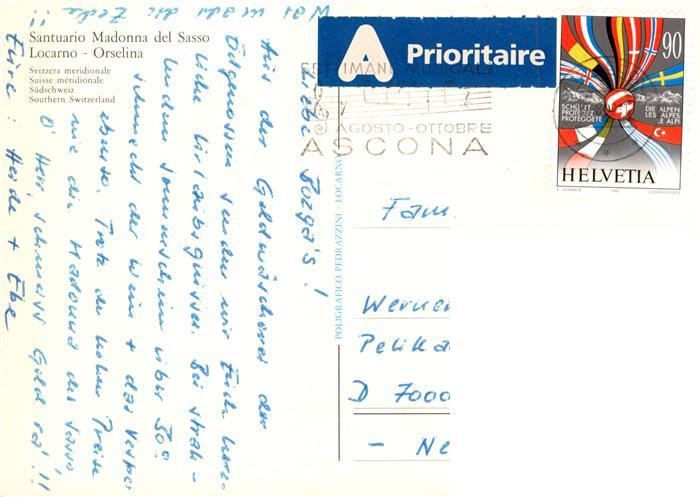 Santuario Madonna del Sasso
Locarno - Orselina
Svizzera meridionale
Suisse méridionale
Südschweiz
Southern Switzerland
A Prioritaire
SETTIMANE MUSICALI
AGOSTO-OTTOBRE
ASCONA
90
SCHÜTZT
PROTEGEZ
PROTEGGETE
DIE ALPEN
LES ALPES
LE ALPI
HELVETIA
POLIGRAFICO PEDRAZZINI - LOCARNO
Liebe Bozga's!
Aus der Goldwäscherei der
Eidgenossen senden wir Euch herz-
liche Urlaubsgrüsse. Bei strah-
lendem Sonnenschein über 30°
schmeckt der Wein + das Vespa
ebenso. Trotz der hohen Preise
wie die Madonna del Sasso
O' Herr, schmeiss Geld ra'!!
Eure: Heide + Ebe
Was macht die Zecke
!!
Fam.
Werner
Pelika
D 7000
- Ne